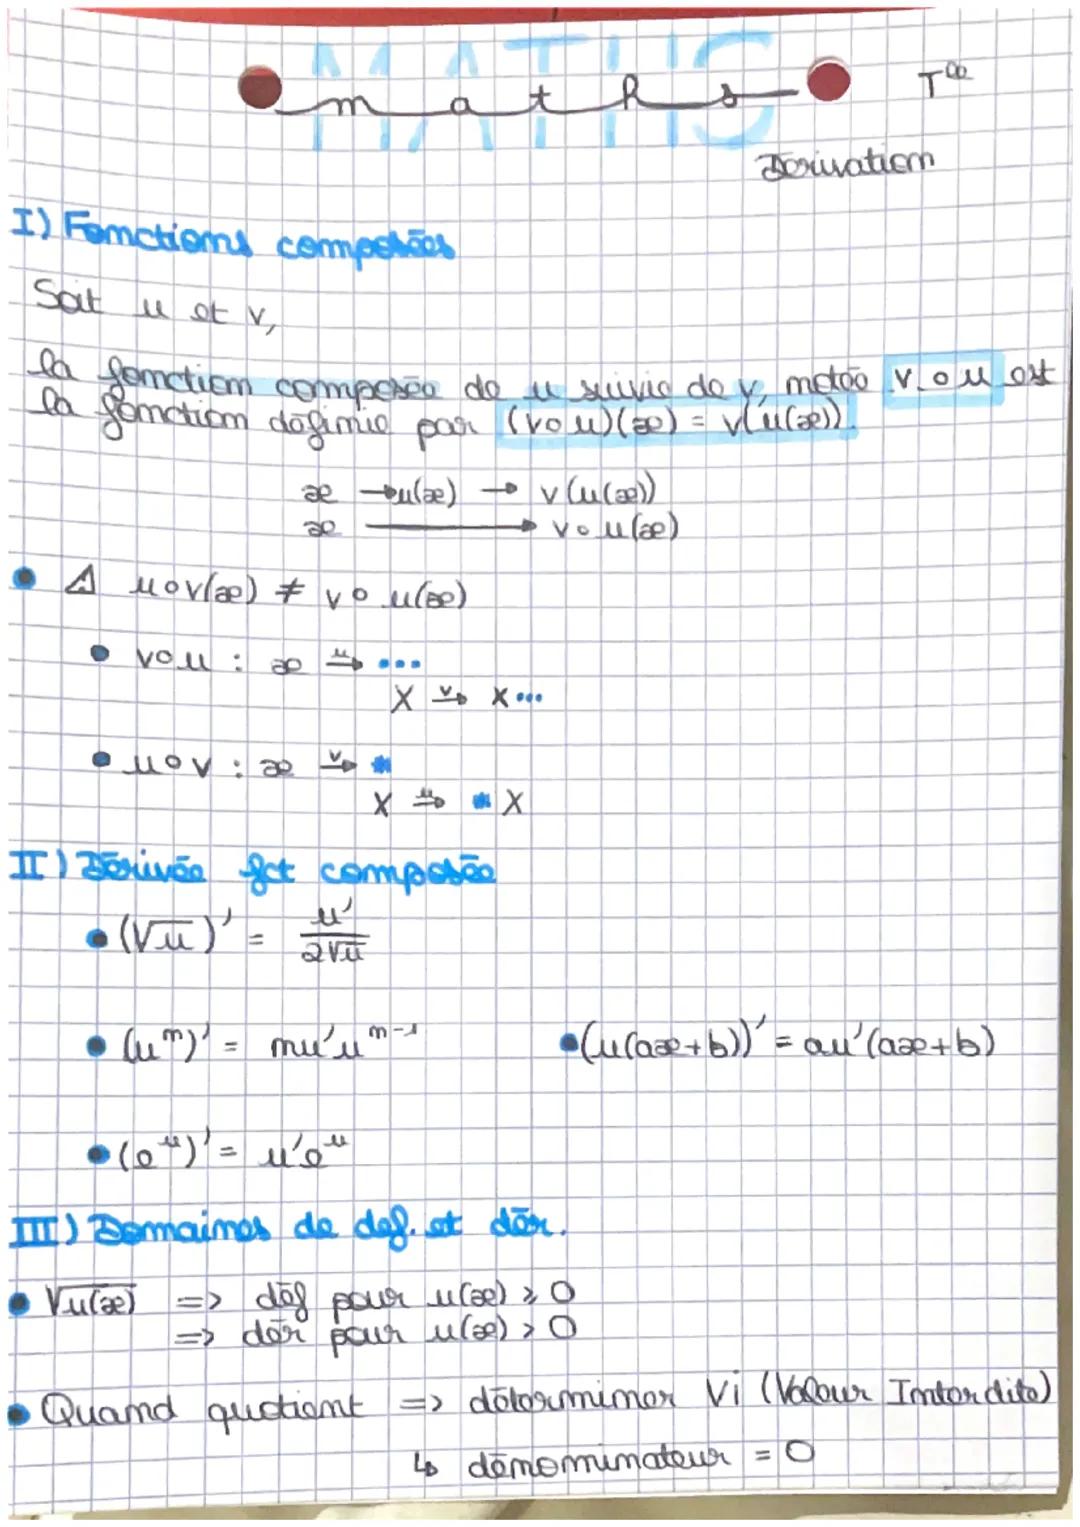 MATHS
maths
T^ale
Dérivation
I) Fonctions composées
Soit u et v,
la fonction composée de u suivie de v, notée v o u est
la fonction définie par (v o u)(x) = v(u(x)).
x → u(x) → v(u(x))
x → v o u(x)
⚠ u o v(x) ≠ v o u(x)
• v o u : x →^u •••
X →^v X •••
• u o v : x →^v *
X →^u * X
II) Dérivée fct composée
• (√u)' = u' / 2√u
• (u^n)' = nu'u^(n-1) • (u(ax+b))' = au'(ax+b)
• (e^u)' = u'e^u
III) Domaines de def. et dér.
• √u(x) => déf pour u(x) ≥ 0
=> dér pour u(x) > 0
• Quand quotient => déterminer Vi (Valeur Interdite)
↳ dénominateur = 0